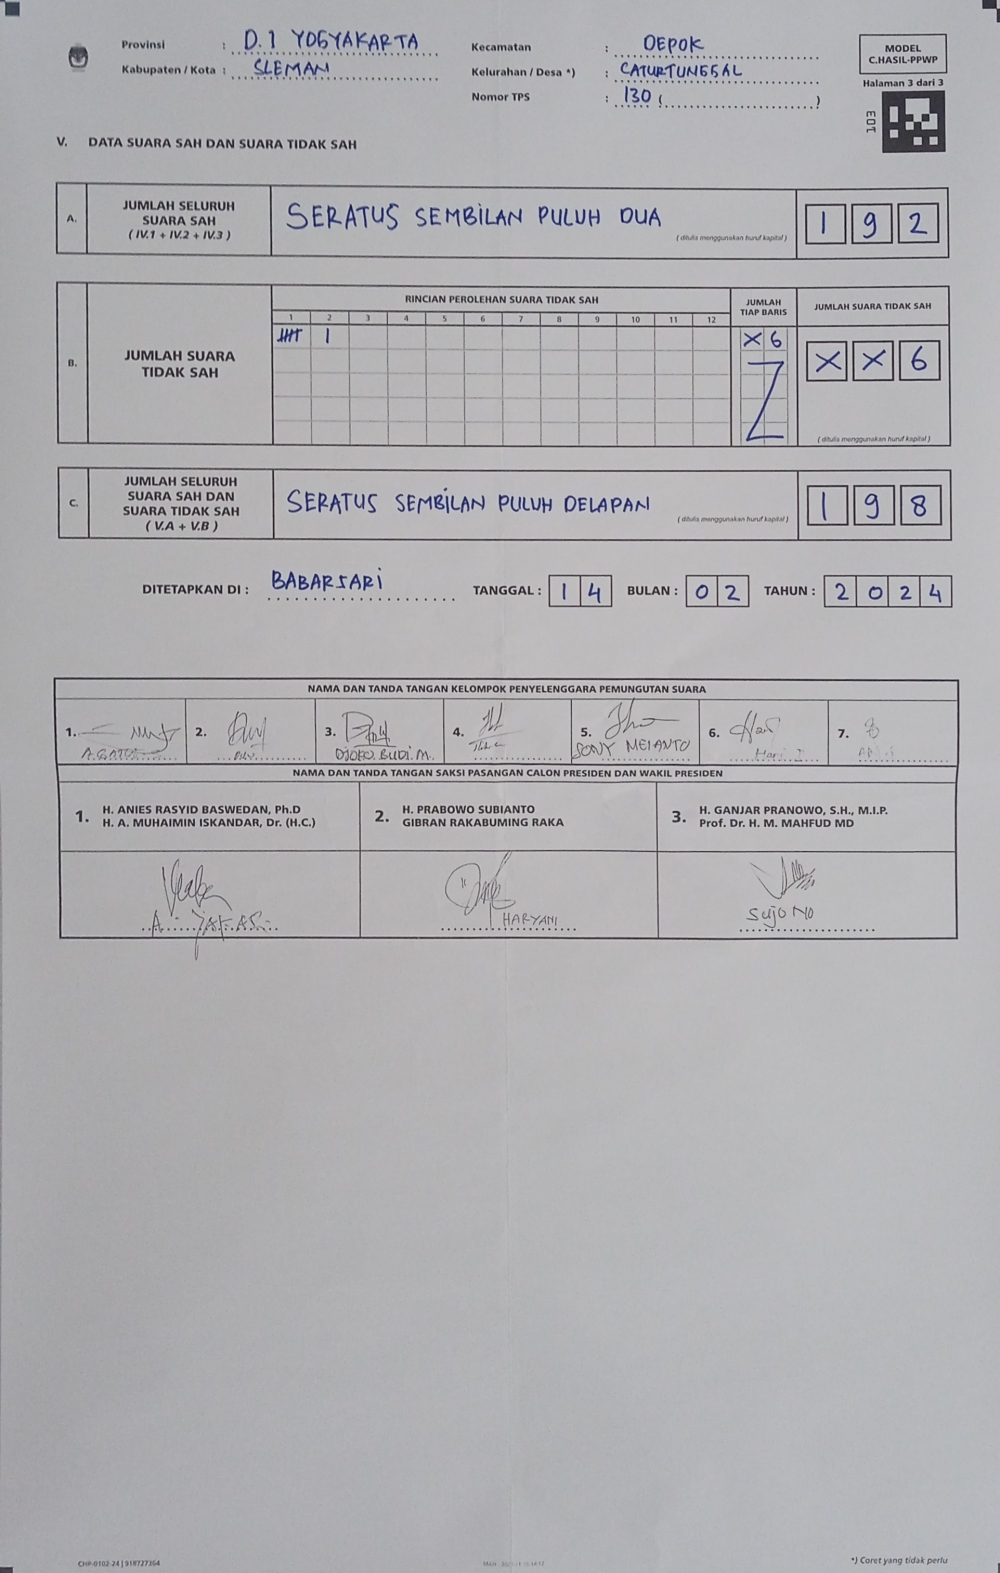 Provinsi : D.I YOGYAKARTA
Kabupaten / Kota : SLEMAN
Kecamatan : DEPOK
Kelurahan / Desa *) : CATURTUNGGAL
Nomor TPS : 130 (..............................)
MODEL
C.HASIL-PPWP
Halaman 3 dari 3
E01
V. DATA SUARA SAH DAN SUARA TIDAK SAH
A. JUMLAH SELURUH
SUARA SAH
( IV.1 + IV.2 + IV.3 )
SERATUS SEMBILAN PULUH DUA
( ditulis menggunakan huruf kapital )
1 9 2
B. JUMLAH SUARA
TIDAK SAH
RINCIAN PEROLEHAN SUARA TIDAK SAH
1 2 3 4 5 6 7 8 9 10 11 12
JUMLAH
TIAP BARIS
X 6
JUMLAH SUARA TIDAK SAH
X X 6
( ditulis menggunakan huruf kapital )
C. JUMLAH SELURUH
SUARA SAH DAN
SUARA TIDAK SAH
( V.A + V.B )
SERATUS SEMBILAN PULUH DELAPAN
( ditulis menggunakan huruf kapital )
1 9 8
DITETAPKAN DI : BABARSARI TANGGAL : 1 4 BULAN : 0 2 TAHUN : 2 0 2 4
NAMA DAN TANDA TANGAN KELOMPOK PENYELENGGARA PEMUNGUTAN SUARA
1. 2. 3. 4. 5. 6. 7.
DJOKO BUDI.M. SONY MEIANTO
NAMA DAN TANDA TANGAN SAKSI PASANGAN CALON PRESIDEN DAN WAKIL PRESIDEN
1. H. ANIES RASYID BASWEDAN, Ph.D
H. A. MUHAIMIN ISKANDAR, Dr. (H.C.)
2. H. PRABOWO SUBIANTO
GIBRAN RAKABUMING RAKA
3. H. GANJAR PRANOWO, S.H., M.I.P.
Prof. Dr. H. M. MAHFUD MD
HARYANI
SUJONO
CHP-0102-24 | 918727364
*) Coret yang tidak perlu